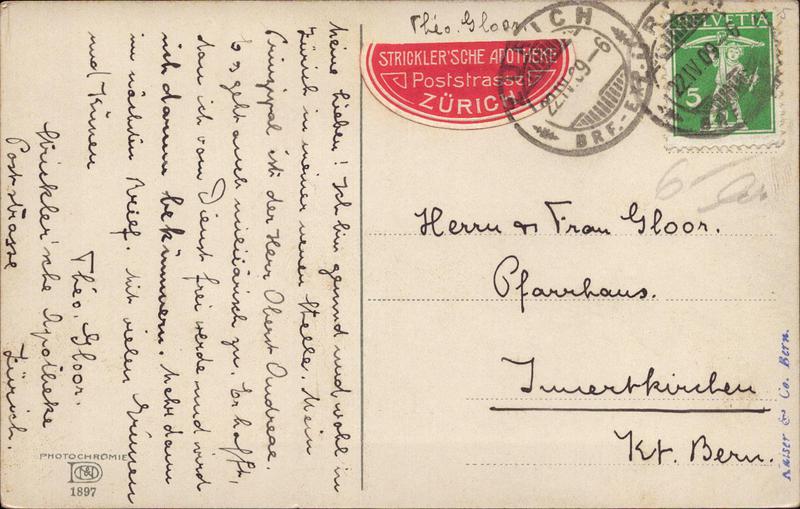 Meine Lieben! Ich bin gesund und wohl in
Zürich in meiner neuen Stelle. Mein
Prinzipal ist der Herr Oberst Andreae.
Es geht auch militärisch zu. Er hofft,
dass ich vom Dienst frei werde und wird
sich darum bekümmern. Mehr dann
im nächsten Brief. Mit vielen Grüssen
und Küssen
Théo. Gloor.
Strickler'sche Apotheke
Poststrasse
Zürich.
PHOTOCHROMIE
1897
Théo. Gloor
STRICKLER'SCHE APOTHEKE
Poststrasse
ZÜRICH
ZÜRICH
22.IV.09-6
BRF.-EXP.
HELVETIA
5
22.IV.09-6
Herrn & Frau Gloor.
Pfarrhaus.
Innertkirchen
Kt. Bern.
Kaiser & Co. Bern.